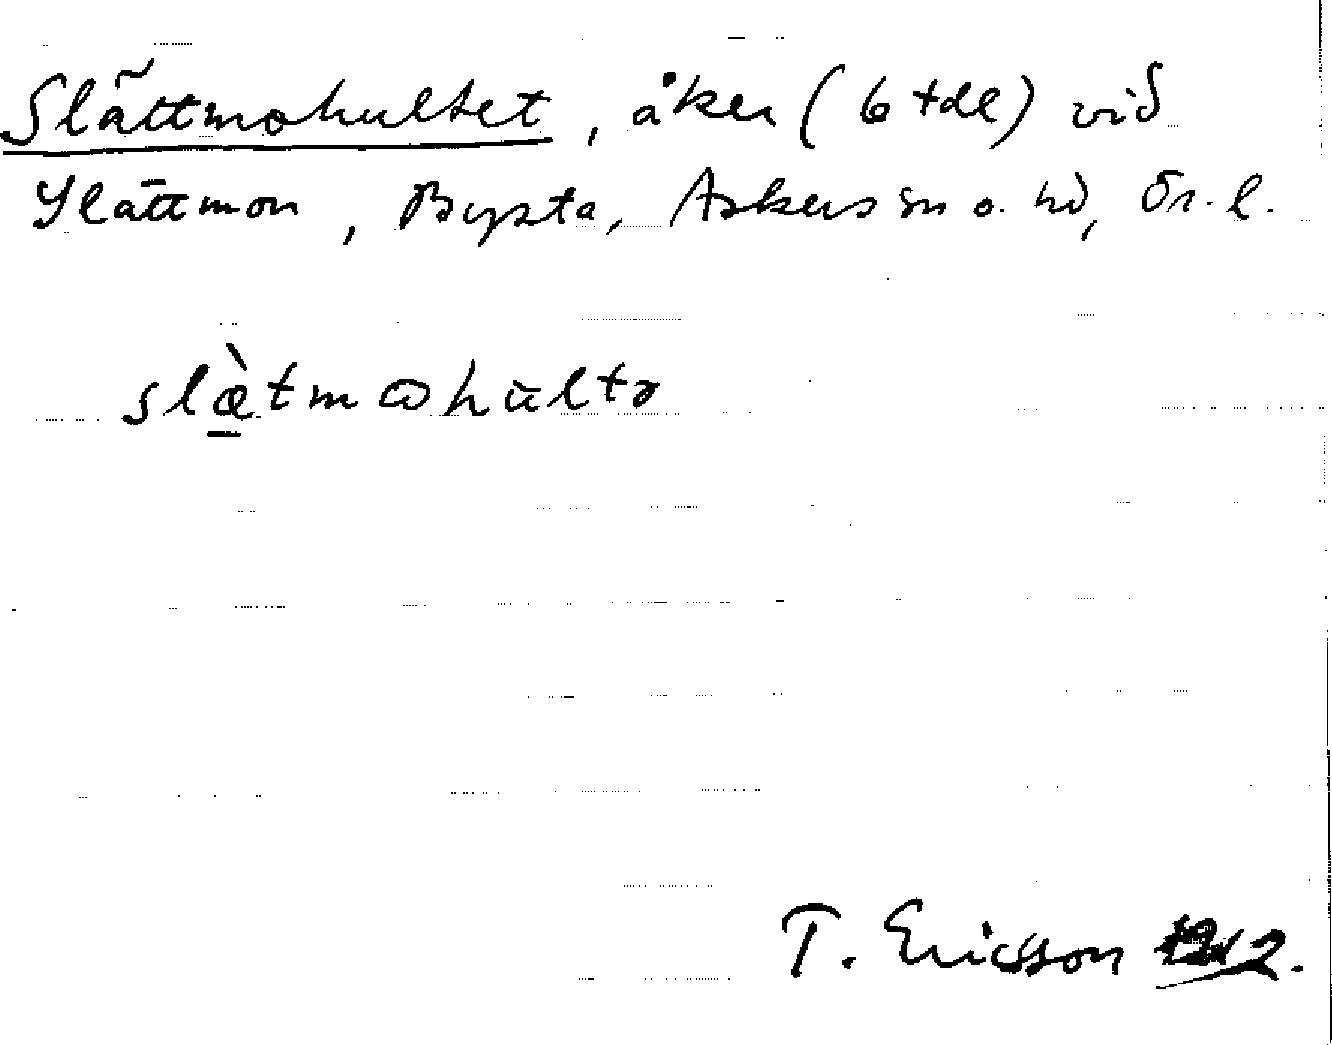 Slättmohultet, åker (6 tdl) vid
Slättmon, Bysta, Askers sn o. hd, Ör. l.
slæ̀tmωhultə
T. Ericsson